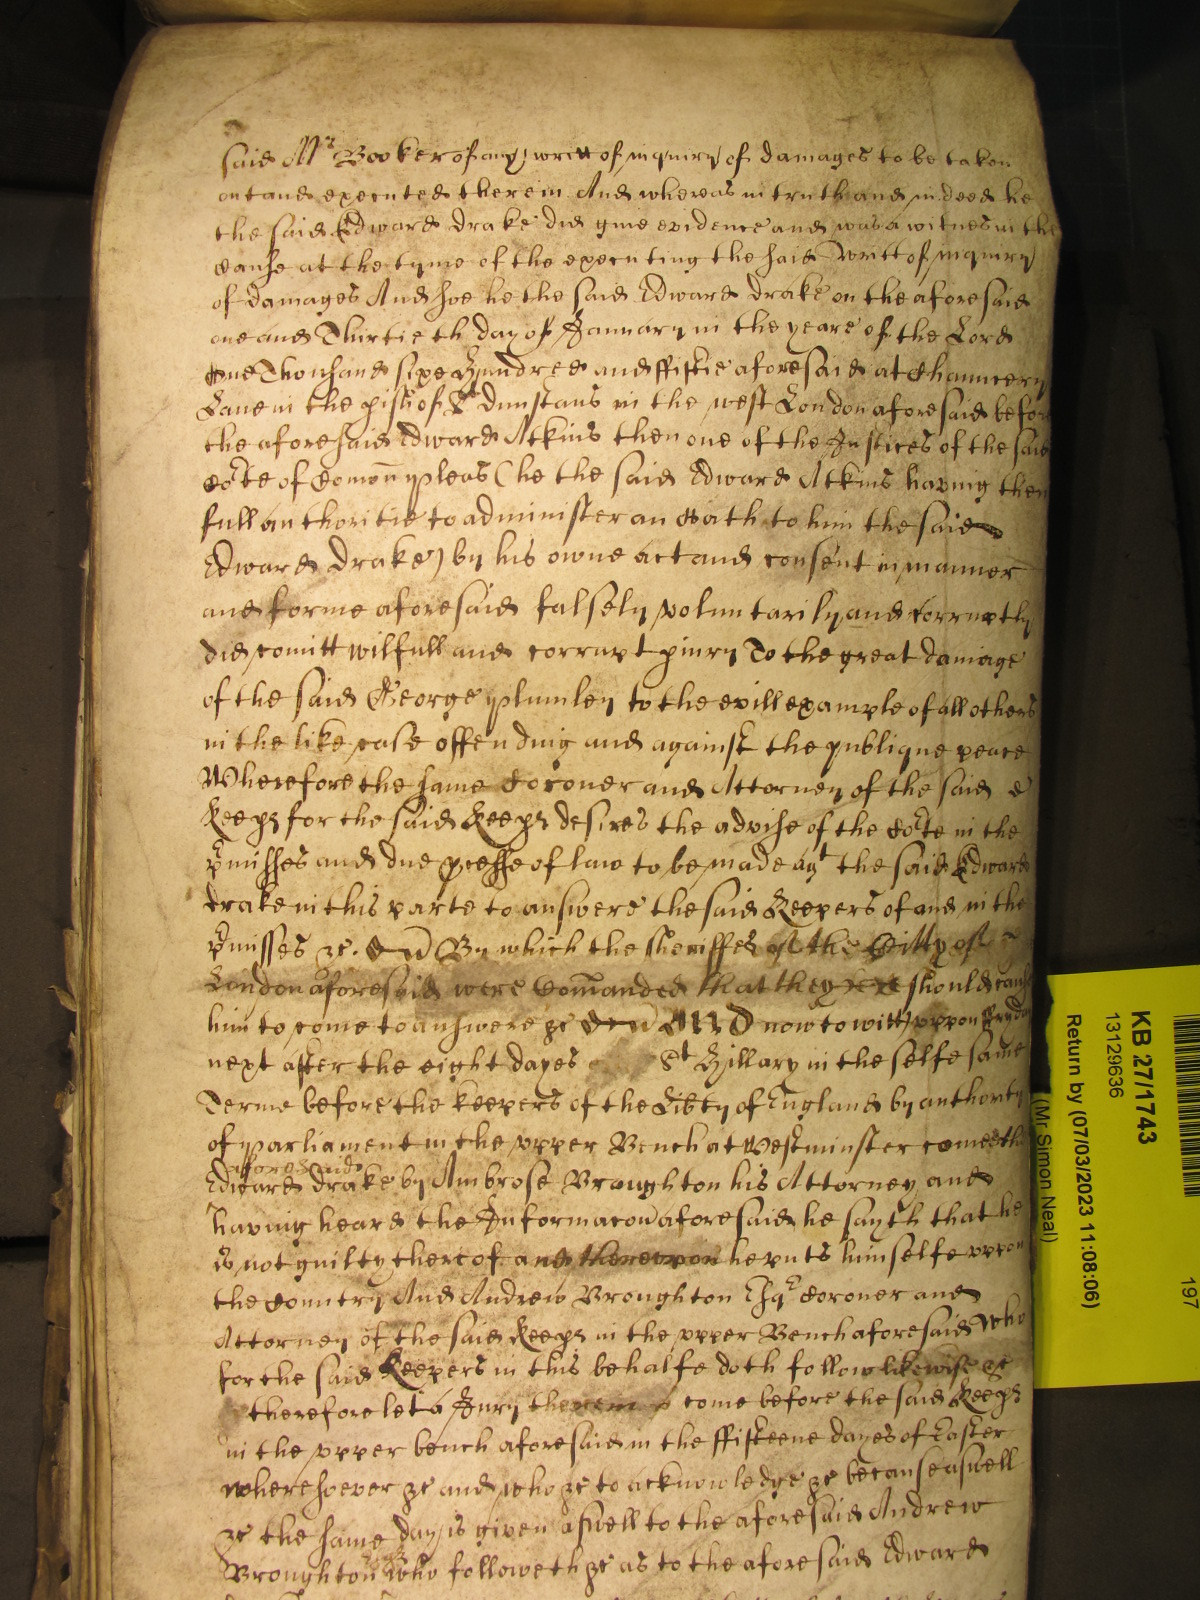 said Mr Booker of any writt of inquiry of damages to be taken
out and executed therein And whereas in truth and in deed he
the said Edward drake did give evidence and was a witnes in the
Cause at the tyme of the executing the said writt of inquiry
of damages And soe he the said Edward drake on the aforesaid
one and Thirtieth day of January in the yeare of the Lord
One Thousand sixe Hundred and ffiftie aforesaid at Chauncery
Lane in the pish of St dunstans in the west London aforesaid before
the aforesaid Edward Atkins then one of the Justices of the said
Cort of Comon pleas (he the said Edward Atkins having then
full authoritie to administer an Oath to him the said
Edward drake) by his owne act and consent in manner
and forme aforesaid falsely voluntarily and corruptly
did comitt wilfull and corrupt piury To the great damage
of the said George plumley to the evill example of all others
in the like case offending and against the publique peace
Wherefore the same Coroner and Attorney of the said
Keeps for the said Keeps desires the advise of the Corte in the
pmisses and due pcesse of law to be made agt the said Edward
drake in this parte to answere the said Keepers of and in the
pmisses &c. By which the sheriffes of the Citty of
London aforesaid were Comanded that they should cause
him to come to answere &c And now to witt uppon ffryday
next after the eight dayes St Hillary in the selfe same
Terme before the keepers of the Libty of England by authority
of parliament in the upper Bench at Westminster cometh
aforesaid
Edward drake by Ambrose Broughton his Attorney and
having heard the Informacon aforesaid he sayth that he
is not guilty thereof and thereupon he puts himselfe uppon
the Country And Andrew Broughton Esqr Coroner and
Attorney of the said Keeps in the upper Bench aforesaid who
for the said Keepers in this behalfe doth follow likewise &c
therefore let a Jury therein come before the said Keeps
in the upper bench aforesaid in the ffifteene dayes of Easter
wheresoever &c and who &c to acknowledge &c because aswell
&c the same day is given aswell to the aforesaid Andrew
Broughton who followeth &c as to the aforesaid Edward
KB 27/1743
13129636
Return by (07/03/2023 11:08:06)
(Mr Simon Neal)
197